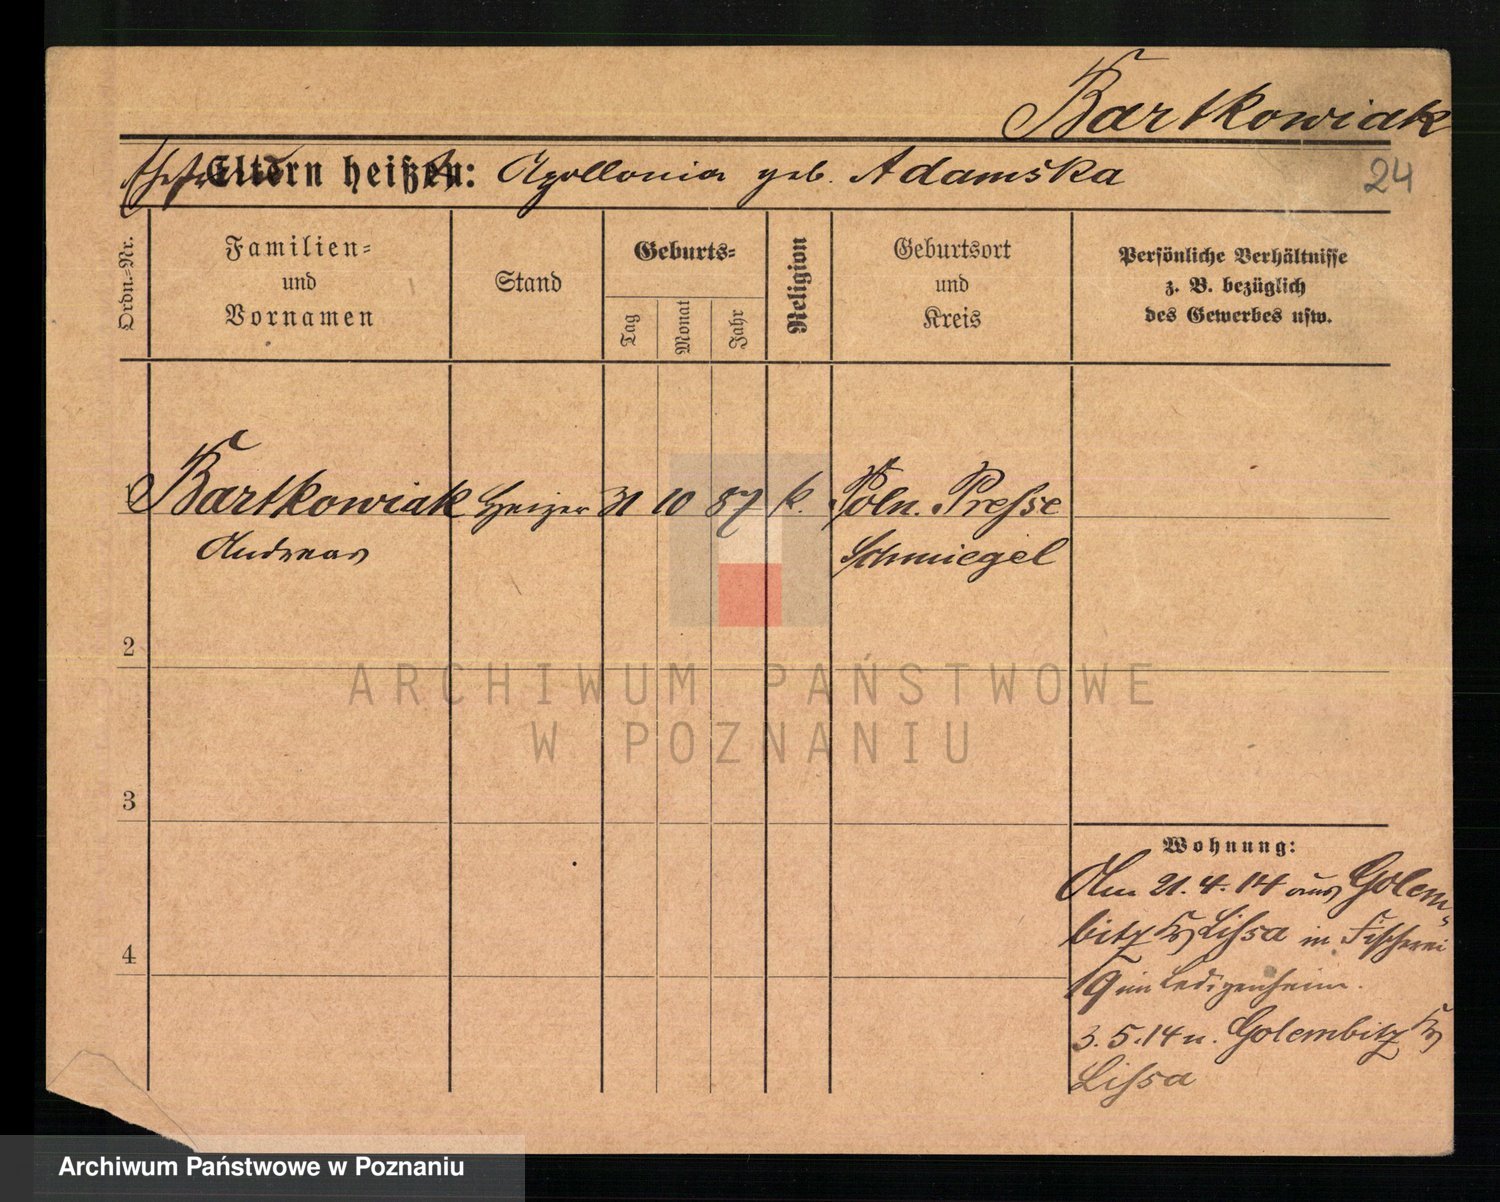 Bartkowiak
Ehefrau Eltern heißen: Apollonia geb. Adamska
24
Ordn.-Nr.
Familien-
und
Vornamen
Stand
Geburts-
Tag
Monat
Jahr
Religion
Geburtsort
und
Kreis
Persönliche Verhältnisse
z. B. bezüglich
des Gewerbes usw.
1 Bartkowiak Heizer 31 10 87 k. Poln. Presse
Andreas Schmiegel
2
3
4
Wohnung:
Am 21.4.14 aus Golem-
bitz Krs Lissa in Fischerei
19 im Ledigenheim.
3.5.14 n. Golembitz Krs
Lissa
ARCHIWUM PAŃSTWOWE
W POZNANIU
Archiwum Państwowe w Poznaniu